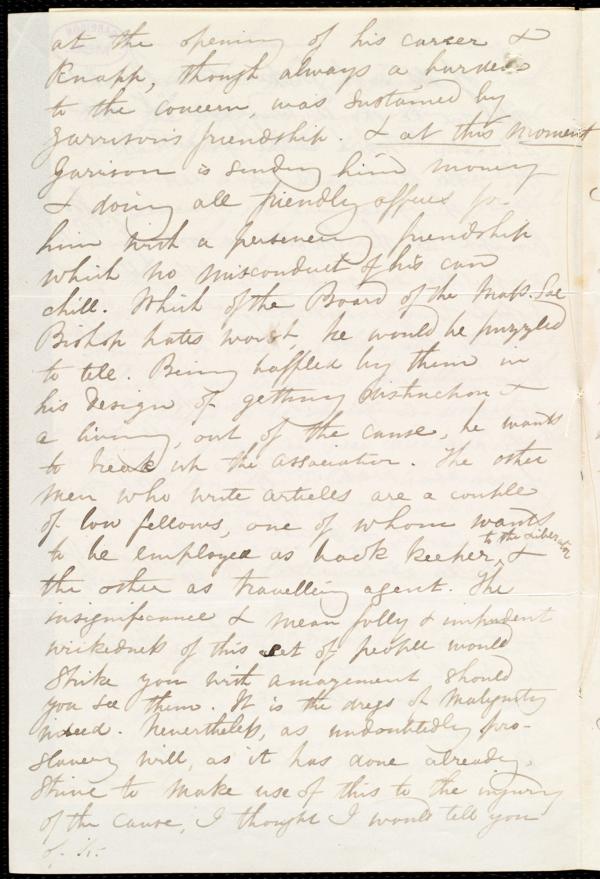 at the opening of his career &
Knapp, though always a burden
to the concern, was sustained by
Garrison's friendship. & at this moment
Garison is sending him money
& doing all friendly offices for
him with a persevering friendship
which no misconduct of his can
chill. Which of the Board of the Mass. Soc
Bishop hates worst, he would be puzzled
to tell. Being baffled by them in
his design of getting distinction &
a living, out of the cause, he wants
to break up the association. The other
men who write articles are a couple
of low fellows, one of whom wants
to be employed as book keeper to the Liberator, &
the other as travelling agent. The
insignificance & mean folly & impudent
wickedness of this set of people would
strike you with amazement should
you see them. It is the dregs of malignity
indeed. Nevertheless, as undoubtedly pro-
slavery will, as it has done already,
strive to make use of this to the injury
of the cause, I thought I would tell you
of it.